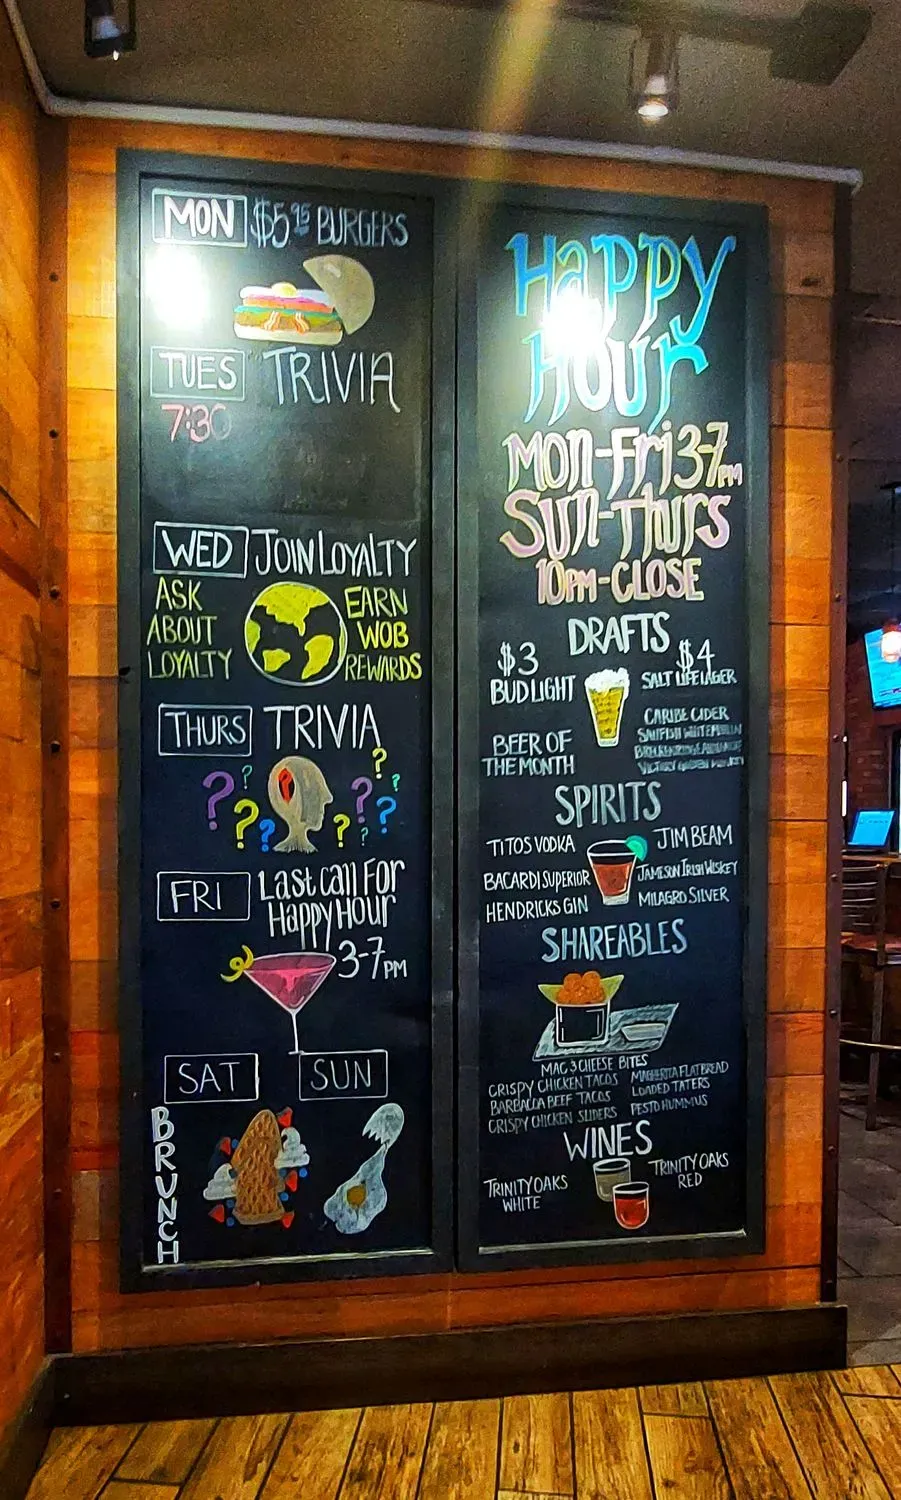 MON $5.95 BURGERS
TUES TRIVIA
7:30
WED JOIN LOYALTY
ASK
ABOUT
LOYALTY
EARN
WOB
REWARDS
THURS TRIVIA
? ? ? ? ? ? ? ? ? ?
FRI LAST CALL FOR
HAPPY HOUR
3-7PM
SAT SUN
BRUNCH
HAPPY
HOUR
MON-FRI 3-7PM
SUN-THURS
10PM-CLOSE
DRAFTS
$3
BUD LIGHT
$4
SALT LIFE LAGER
BEER OF
THE MONTH
CARIBE CIDER
SPIRITS
TITOS VODKA
BACARDI SUPERIOR
HENDRICKS GIN
JIM BEAM
JAMESON IRISH WISKEY
MILAGRO SILVER
SHAREABLES
MAC 3 CHEESE BITES
CRISPY CHICKEN TACOS
BARBACCA BEEF TACOS
CRISPY CHICKEN SLIDERS
FLATBREAD
LOADED TATERS
PESTO HUMMUS
WINES
TRINITY OAKS
WHITE
TRINITY OAKS
RED